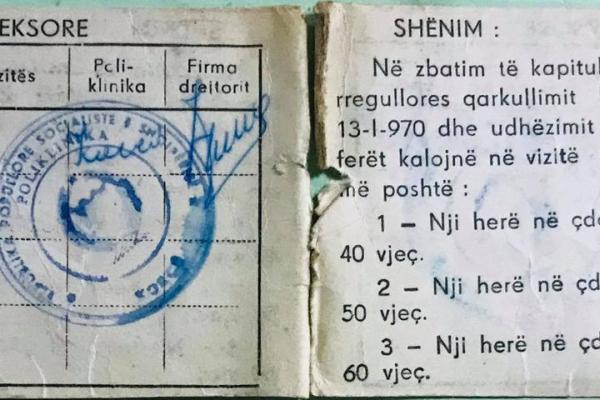 EKSORE
zitës
Poli-
klinika
Firma
drejtorit
POPULLORE SOCIALISTE E SHQIPËRISË
POLIKLINIKA
SHËNIM :
Në zbatim të kapitul
rregullores qarkullimit
13-I-970 dhe udhëzimit
ferët kalojnë në vizitë
më poshtë :
1 – Nji herë në çdo
40 vjeç.
2 – Nji herë në çd
50 vjeç.
3 – Nji herë në çd
60 vjeç.